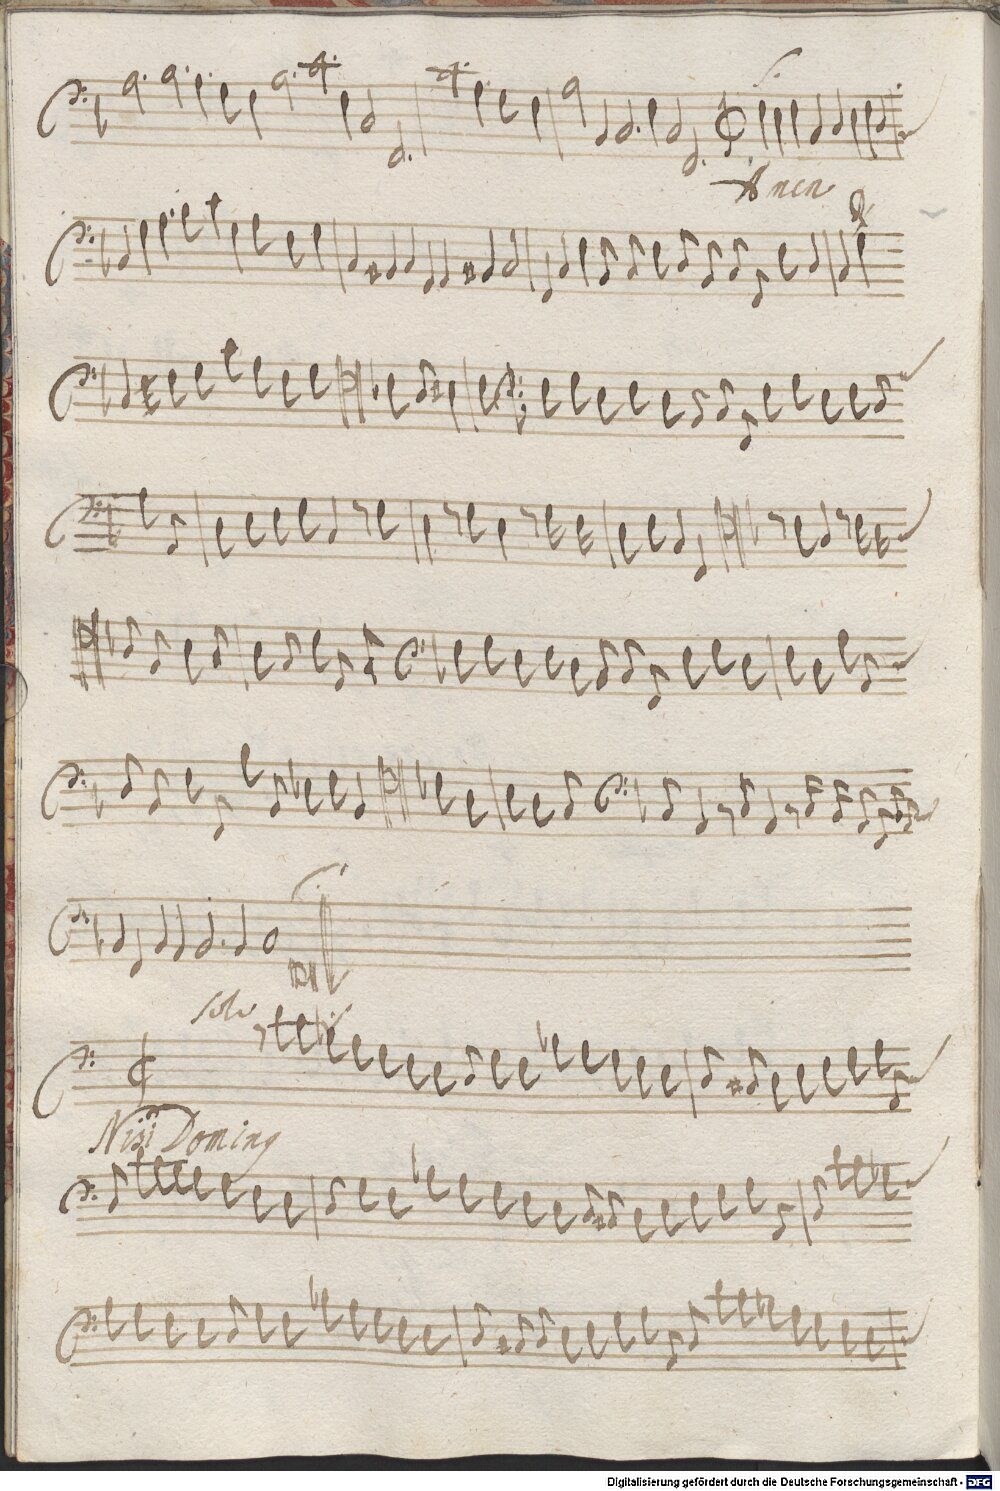 Amen
solo
Nisi Doming
Digitalisierung gefördert durch die Deutsche Forschungsgemeinschaft - DFG